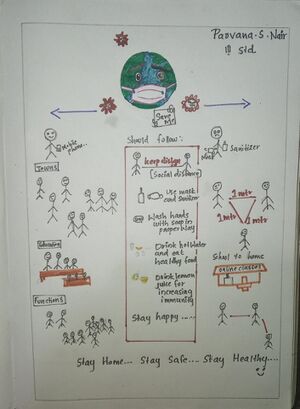 Paovana.S.Nair
III std
Save
me
Should follow:
Sanitizer
Mask
Towns
[Social distance]
1 mtr
1 mtr
1 mtr
Use mask
and Sanitizer
Wash hands
with soap in
proper way
Drink hot Water
and eat
healthy food
Shool to home
ONLINE CLASSES
Drink lemon
juice for
increasing
immunity
Functions
Stay happy .....
Stay Home... Stay Safe... Stay Healthy....